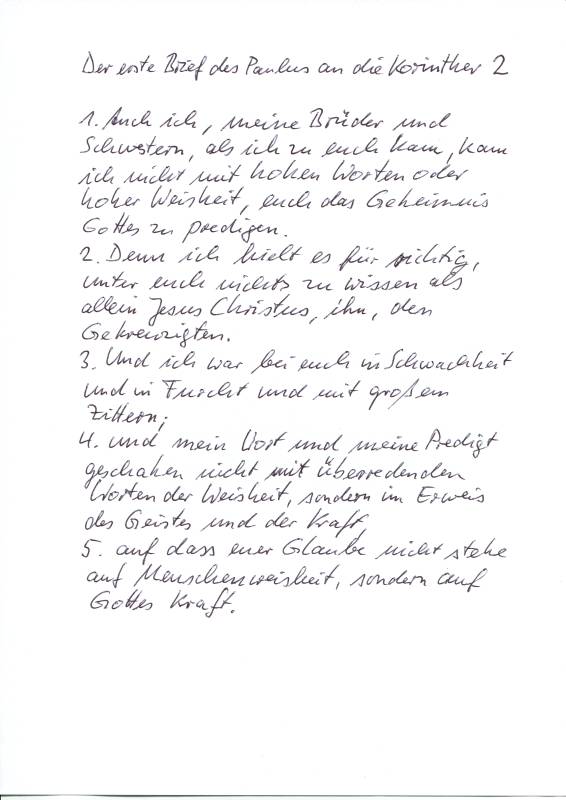 Der erste Brief des Paulus an die Korinther 2
1. Auch ich, meine Brüder und
Schwestern, als ich zu euch kam, kam
ich nicht mit hohen Worten oder
hoher Weisheit, euch das Geheimnis
Gottes zu predigen.
2. Denn ich hielt es für richtig,
unter euch nichts zu wissen als
allein Jesus Christus, ihn, den
Gekreuzigten.
3. Und ich war bei euch in Schwachheit
und in Furcht und mit großem
Zittern;
4. und mein Wort und meine Predigt
geschahen nicht mit überredenden
Worten der Weisheit, sondern im Erweis
des Geistes und der Kraft,
5. auf dass euer Glaube nicht stehe
auf Menschenweisheit, sondern auf
Gottes Kraft.